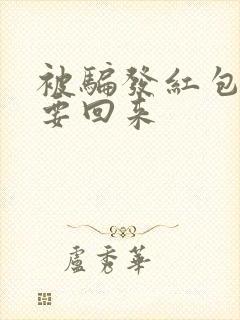 被騙發紅包
要回来
盧秀華